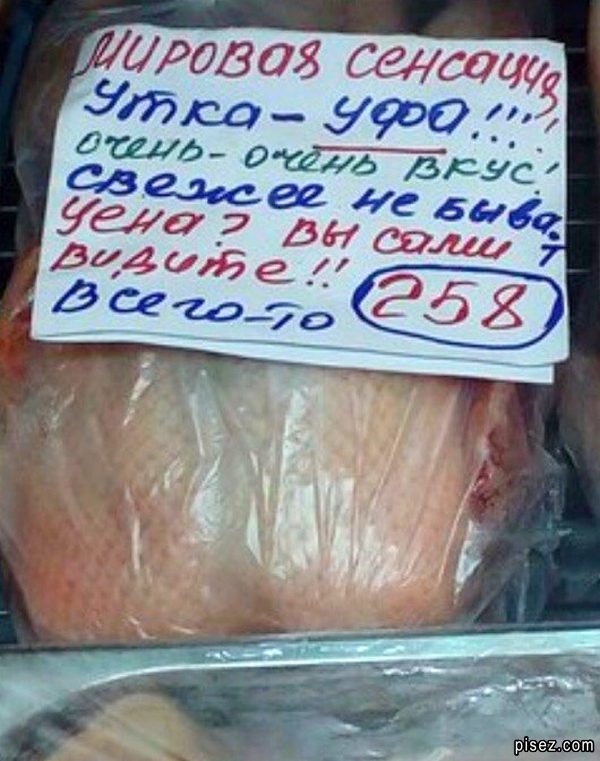 МИРОВАЯ СЕНСАЦИЯ
УТКА - УФА!!!!
ОЧЕНЬ - ОЧЕНЬ ВКУС!
СВЕЖЕЕ НЕ БЫВАЕТ
ЦЕНА? ВЫ САМИ
ВИДИТЕ!!
ВСЕГО-ТО 258
pisez.com